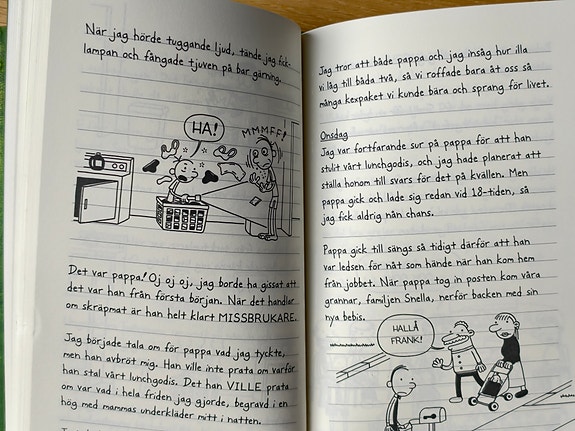 När jag hörde tuggande ljud, tände jag fick-
lampan och fångade tjuven på bar gärning.
HA!
MMMFF!
Det var pappa! Oj oj oj, jag borde ha gissat att
det var han från första början. När det handlar
om skräpmat är han helt klart MISSBRUKARE.
Jag började tala om för pappa vad jag tyckte,
men han avbröt mig. Han ville inte prata om varför
han stal vårt lunchgodis. Det han VILLE prata
om var vad i hela friden jag gjorde, begravd i en
hög med mammas underkläder mitt i natten.
Jag tror att både pappa och jag insåg hur illa
vi låg till båda två, så vi roffade bara åt oss så
många kexpaket vi kunde bära och sprang för livet.
Onsdag
Jag var fortfarande sur på pappa för att han
stulit vårt lunchgodis, och jag hade planerat att
ställa honom till svars för det på kvällen. Men
pappa gick och lade sig redan vid 18-tiden, så
jag fick aldrig nån chans.
Pappa gick till sängs så tidigt därför att han
var ledsen för nåt som hände när han kom hem
från jobbet. När pappa tog in posten kom våra
grannar, familjen Snella, nerför backen med sin
nya bebis.
HALLÅ
FRANK!